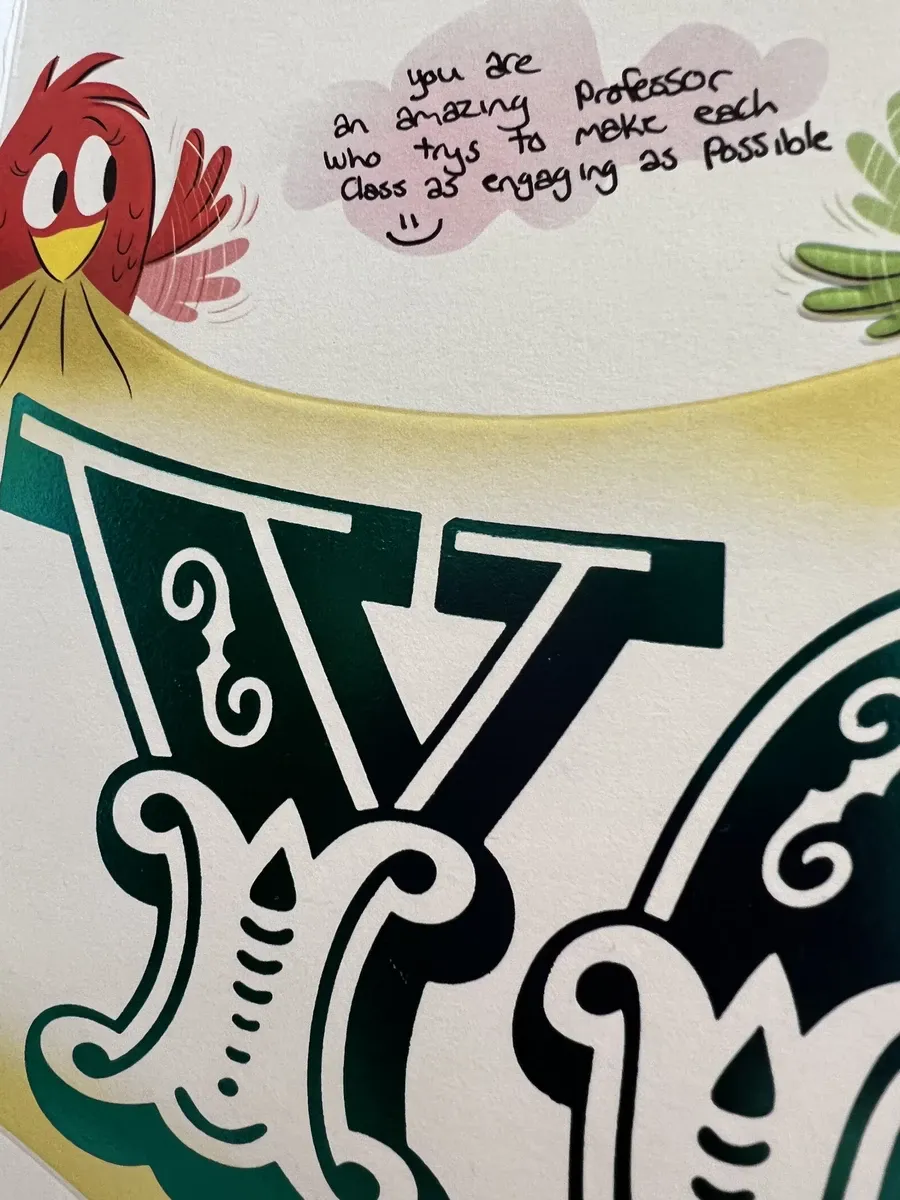 you are
an amazing Professor
who trys to make each
Class as engaging as Possible
Y